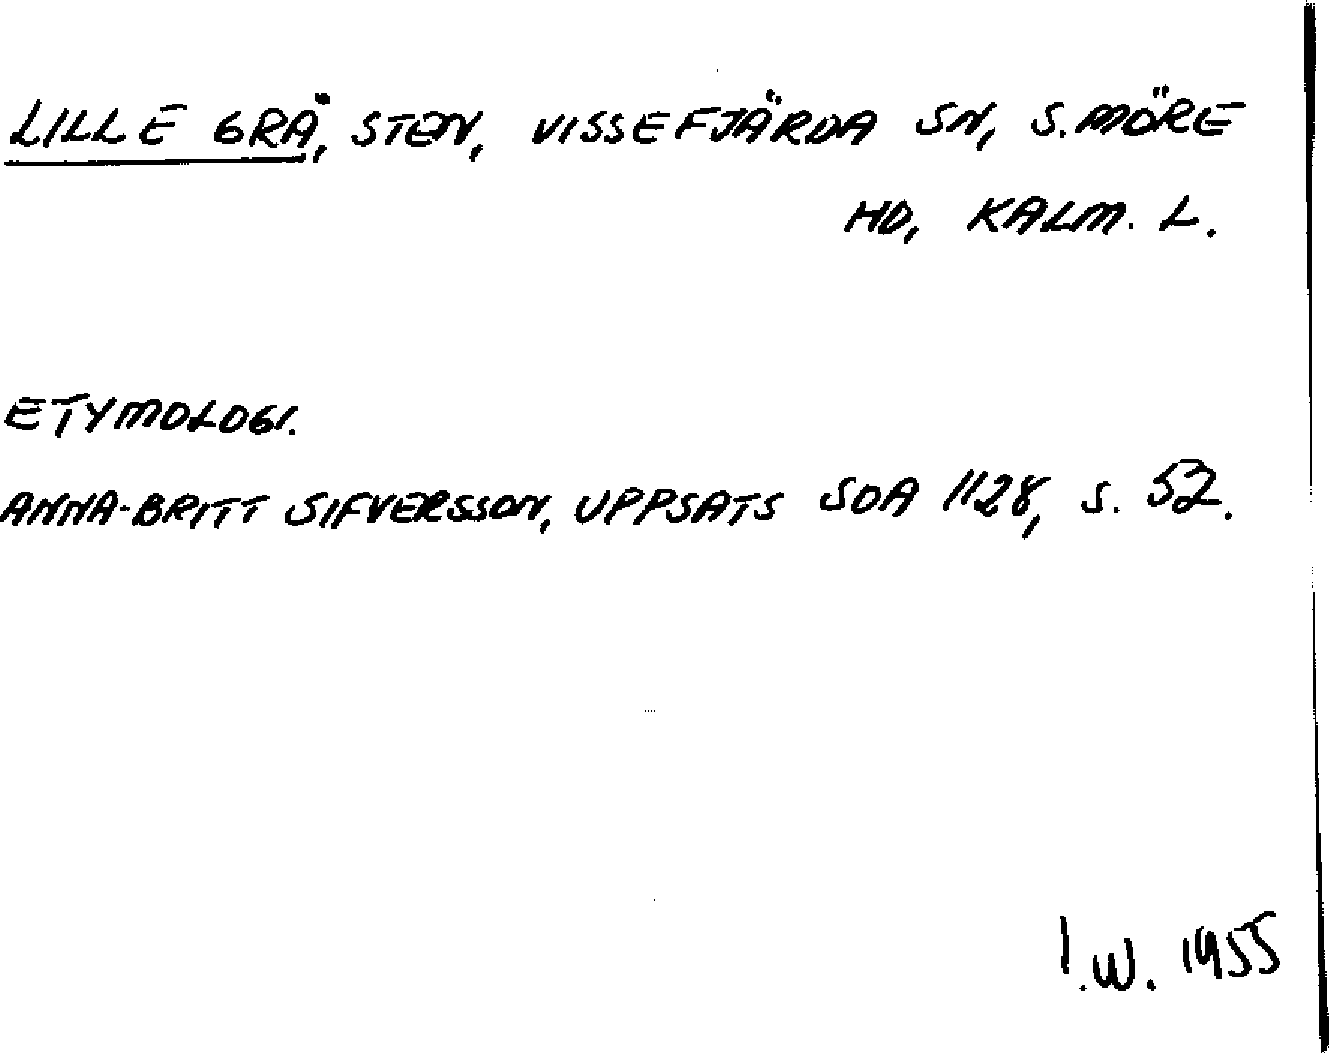 LILLE GRÅ, STEN, VISSEFJÄRDA SN, S. MÖRE
HD, KALM. L.
ETYMOLOGI.
ANNA-BRITT SIFVERSSON, UPPSATS SOA 1128, S. 52.
I.W. 1955